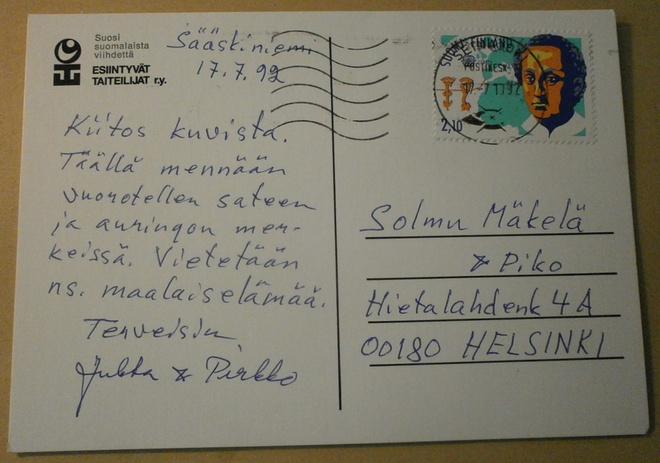 Suosi
suomalaista
viihdettä
ESIINTYVÄT
TAITEILIJAT r.y.
Sääskiniemi
17.7.92
Kiitos kuvista.
Täällä mennään
vuorotellen sateen
ja auringon mer-
keissä. Vietetään
ns. maalaiselämää.
Terveisin
Jukka & Pirkko
SUOMI FINLAND
2,10
Solmu Mäkelä
& Piko
Hietalahdenk 4 A
00180 HELSINKI